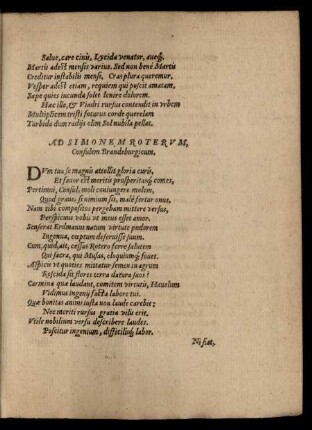 Salue, care cinis, Lycida venator, aueq́;.
Martis adest mensis varius. Sed non benè Martis
Creditur instabilis mensi, Cras plura queremur,
Vesper adest etiam, requiem qui poscit amatam,
Sæpe quies iucunda solet lenire dolorem.
Hæc ille, & Viadri rursus contendit in vrbem
Multiplicem tristi foturus corde querelam
Turbida dum radijs olim Sol nubila pellat.
AD SIMONEM ROTERVM,
Consulem Brandeburgicum.
DVm tua se magnis attollit gloria curis,
Et fauor est meritis prosperitasq́; comes,
Pertimui, Consul, moli coniungere molem,
Quod graue, si nimium sit, malè fertur onus.
Nam tibi compositos pergebam mittere versus,
Perspicuus vobis vt meus esset amor.
Senserat Erdmanus natum virtute pudorem
Ingenua, cœptum deseruisse suum.
Cum, quid, ait, cessas Rotero ferre salutem
Qui sacra, qui Musas, eloquiumq́; fouet.
Aspicis vt quoties mittatur semen in agrum
Roscida sit flores terra datura suos?
Carmina quæ laudant, comitem virtutis, Hauelum
Vidimus ingenij facta labore tui.
Quæ bonitas animi iusta non laude carebit?
Nec meriti rursus gratia vilis erit.
Vtile nobilium versu describere laudes.
Poscitur ingenium, difficilisq́; labor.
Ni fiat,